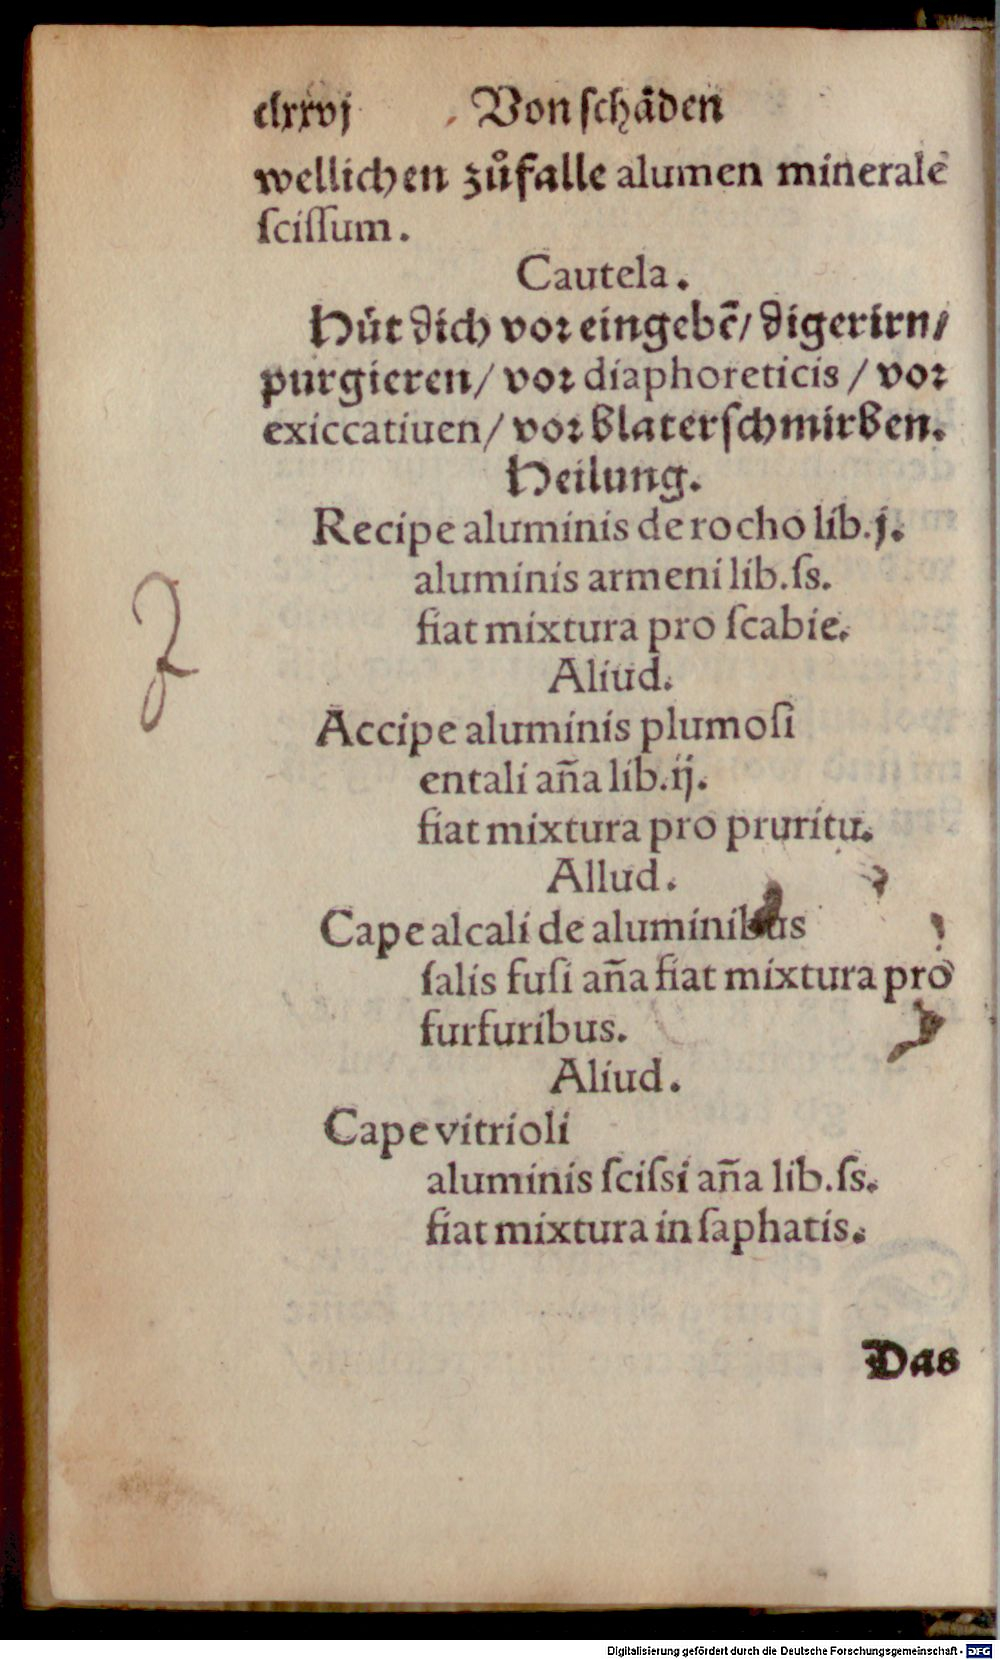 clxxvj Von schåden
wellichen zůfalle alumen minerale
ſciſſum.
Cautela.
Hüt dich vor eingebē/ digerirn/
purgieren/ vor diaphoreticis / vor
exiccatiuen/ vor blaterſchmirben.
Heilung.
Recipe aluminis de rocho lib.j.
aluminis armeni lib.ſs.
fiat mixtura pro ſcabie.
Aliud.
Accipe aluminis plumoſi
entali aña lib.ij.
fiat mixtura pro pruritu.
Allud.
Cape alcali de aluminibus
ſalis fuſi aña fiat mixtura pro
furfuribus.
Aliud.
Cape vitrioli
aluminis ſciſsi aña lib.ſs.
fiat mixtura in ſaphatis.
Das
Digitalisierung gefördert durch die Deutsche Forschungsgemeinschaft - DFG